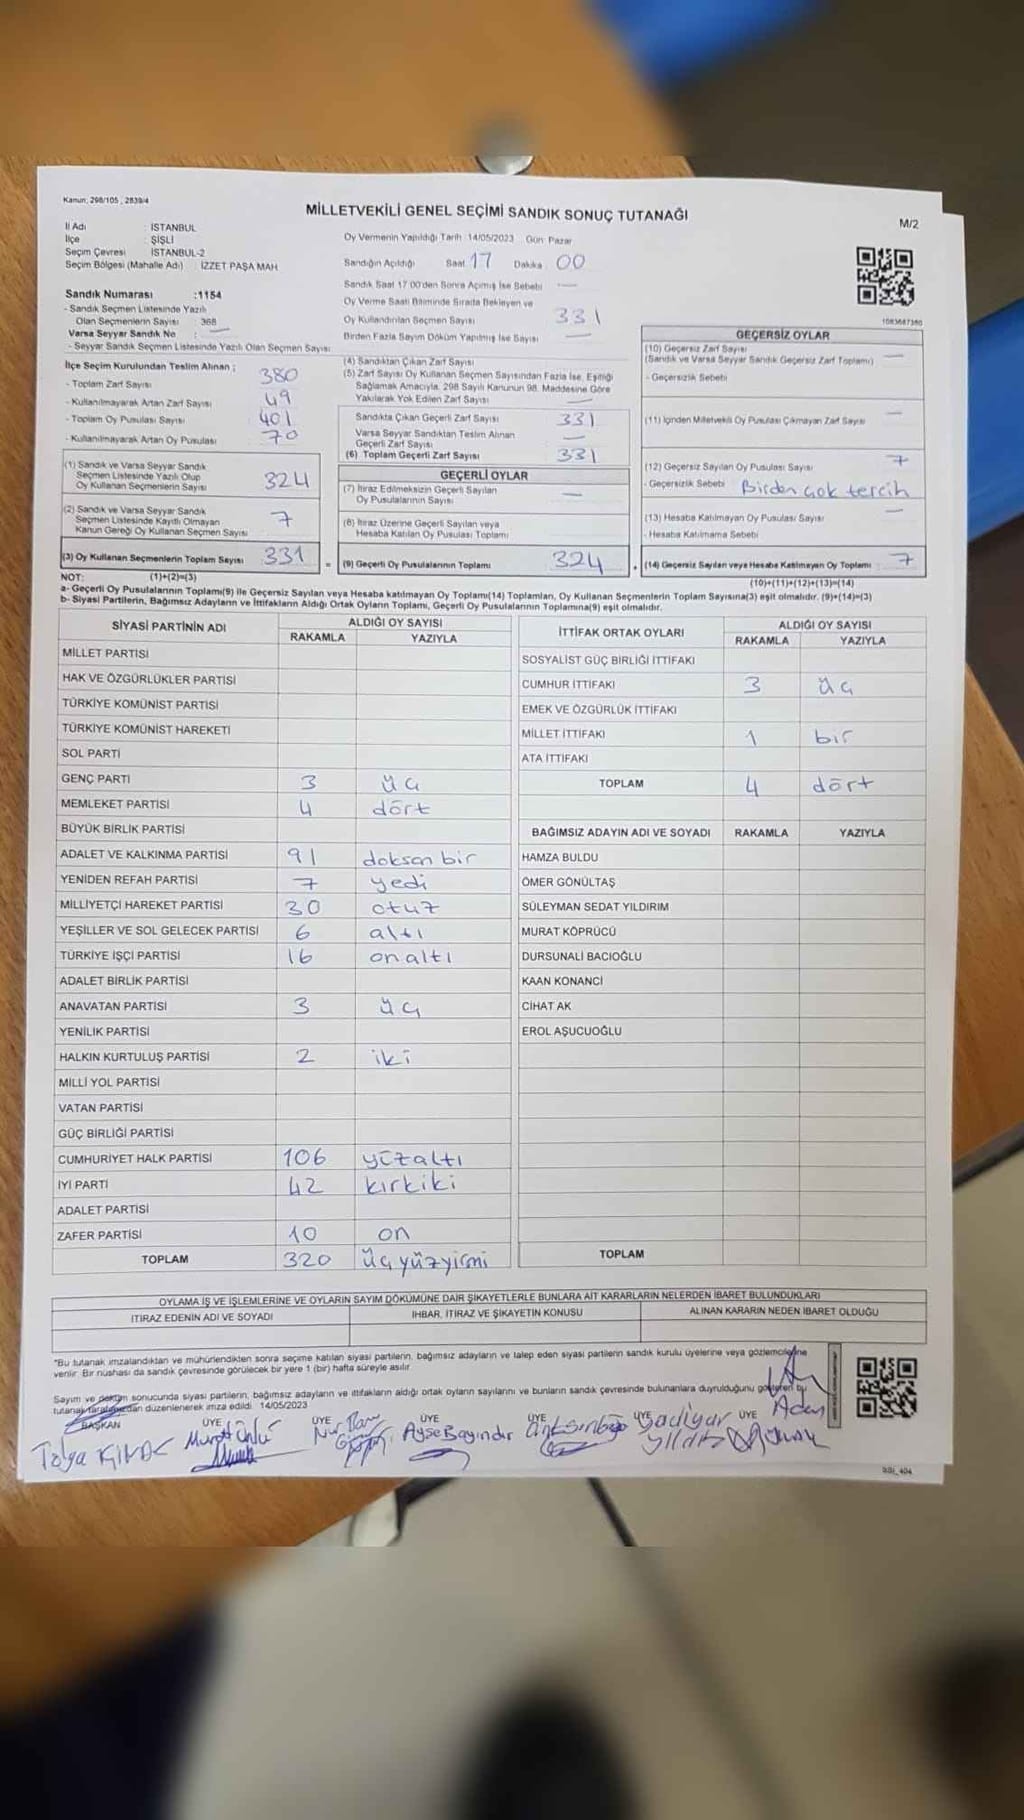 Kanun; 298/105 , 2839/4
MİLLETVEKİLİ GENEL SEÇİMİ SANDIK SONUÇ TUTANAĞI
M/2
İl Adı : İSTANBUL
İlçe : ŞİŞLİ
Seçim Çevresi : İSTANBUL-2
Seçim Bölgesi (Mahalle Adı) : İZZET PAŞA MAH
Sandık Numarası :1154
- Sandık Seçmen Listesinde Yazılı
Olan Seçmenlerin Sayısı : 368
Varsa Seyyar Sandık No : —
- Seyyar Sandık Seçmen Listesinde Yazılı Olan Seçmen Sayısı:
Oy Vermenin Yapıldığı Tarih :14/05/2023 Gün: Pazar
Sandığın Açıldığı Saat 17 Dakika 00
Sandık Saat 17.00'den Sonra Açılmış İse Sebebi —
Oy Verme Saati Bitiminde Sırada Bekleyen ve
Oy Kullandırılan Seçmen Sayısı 331
Birden Fazla Sayım Döküm Yapılmış İse Sayısı —
İlçe Seçim Kurulundan Teslim Alınan ;
- Toplam Zarf Sayısı 380
- Kullanılmayarak Artan Zarf Sayısı 49
- Toplam Oy Pusulası Sayısı 401
- Kullanılmayarak Artan Oy Pusulası 70
(1) Sandık ve Varsa Seyyar Sandık
Seçmen Listesinde Yazılı Olup
Oy Kullanan Seçmenlerin Sayısı 324
(2) Sandık ve Varsa Seyyar Sandık
Seçmen Listesinde Kayıtlı Olmayan
Kanun Gereği Oy Kullanan Seçmen Sayısı 7
(3) Oy Kullanan Seçmenlerin Toplam Sayısı 331
(4) Sandıktan Çıkan Zarf Sayısı
(5) Zarf Sayısı Oy Kullanan Seçmen Sayısından Fazla İse, Eşitliği
Sağlamak Amacıyla, 298 Sayılı Kanunun 98. Maddesine Göre
Yakılarak Yok Edilen Zarf Sayısı —
Sandıkta Çıkan Geçerli Zarf Sayısı 331
Varsa Seyyar Sandıktan Teslim Alınan
Geçerli Zarf Sayısı —
(6) Toplam Geçerli Zarf Sayısı 331
GEÇERLİ OYLAR
(7) İtiraz Edilmeksizin Geçerli Sayılan
Oy Pusulalarının Sayısı —
(8) İtiraz Üzerine Geçerli Sayılan veya
Hesaba Katılan Oy Pusulası Toplamı
= (9) Geçerli Oy Pusulalarının Toplamı 324
1083687380
GEÇERSİZ OYLAR
(10) Geçersiz Zarf Sayısı
(Sandık ve Varsa Seyyar Sandık Geçersiz Zarf Toplamı) —
- Geçersizlik Sebebi
(11) İçinden Milletvekili Oy Pusulası Çıkmayan Zarf Sayısı —
(12) Geçersiz Sayılan Oy Pusulası Sayısı 7
- Geçersizlik Sebebi Birden çok tercih
(13) Hesaba Katılmayan Oy Pusulası Sayısı —
- Hesaba Katılmama Sebebi
+ (14) Geçersiz Sayılan veya Hesaba Katılmayan Oy Toplamı 7
NOT: (1)+(2)=(3)
(10)+(11)+(12)+(13)=(14)
a- Geçerli Oy Pusulasının Toplamı(9) ile Geçersiz Sayılan veya Hesaba katılmayan Oy Toplamı(14) Toplamları, Oy Kullanan Seçmenlerin Toplam Sayısına(3) eşit olmalıdır. (9)+(14)=(3)
b- Siyasi Partilerin, Bağımsız Adayların ve İttifakların Aldığı Ortak Oyların Toplamı, Geçerli Oy Pusulalarının Toplamına(9) eşit olmalıdır.
SİYASİ PARTİNİN ADI
ALDIĞI OY SAYISI
RAKAMLA YAZIYLA
MİLLET PARTİSİ
HAK VE ÖZGÜRLÜKLER PARTİSİ
TÜRKİYE KOMÜNİST PARTİSİ
TÜRKİYE KOMÜNİST HAREKETİ
SOL PARTİ
GENÇ PARTİ 3 üç
MEMLEKET PARTİSİ 4 dört
BÜYÜK BİRLİK PARTİSİ
ADALET VE KALKINMA PARTİSİ 91 doksan bir
YENİDEN REFAH PARTİSİ 7 yedi
MİLLİYETÇİ HAREKET PARTİSİ 30 otuz
YEŞİLLER VE SOL GELECEK PARTİSİ 6 altı
TÜRKİYE İŞÇİ PARTİSİ 16 onaltı
ADALET BİRLİK PARTİSİ
ANAVATAN PARTİSİ 3 üç
YENİLİK PARTİSİ
HALKIN KURTULUŞ PARTİSİ 2 iki
MİLLİ YOL PARTİSİ
VATAN PARTİSİ
GÜÇ BİRLİĞİ PARTİSİ
CUMHURİYET HALK PARTİSİ 106 yüzaltı
İYİ PARTİ 42 kırkiki
ADALET PARTİSİ
ZAFER PARTİSİ 10 on
TOPLAM 320 üçyüzyirmi
İTTİFAK ORTAK OYLARI
ALDIĞI OY SAYISI
RAKAMLA YAZIYLA
SOSYALİST GÜÇ BİRLİĞİ İTTİFAKI
CUMHUR İTTİFAKI 3 üç
EMEK VE ÖZGÜRLÜK İTTİFAKI
MİLLET İTTİFAKI 1 bir
ATA İTTİFAKI
TOPLAM 4 dört
BAĞIMSIZ ADAYIN ADI VE SOYADI RAKAMLA YAZIYLA
HAMZA BULDU
ÖMER GÖNÜLTAŞ
SÜLEYMAN SEDAT YILDIRIM
MURAT KÖPRÜCÜ
DURSUNALİ BACIOĞLU
KAAN KONANCİ
CİHAT AK
EROL AŞUCUOĞLU
TOPLAM
OYLAMA İŞ VE İŞLEMLERİNE VE OYLARIN SAYIM DÖKÜMÜNE DAİR ŞİKAYETLERLE BUNLARA AİT KARARLARIN NELERDEN İBARET BULUNDUKLARI
İTİRAZ EDENİN ADI VE SOYADI
İHBAR, İTİRAZ VE ŞİKAYETİN KONUSU
ALINAN KARARIN NEDEN İBARET OLDUĞU
*Bu tutanak imzalandıktan ve mühürlendikten sonra seçime katılan siyasi partilerin, bağımsız adayların ve talep eden siyasi partilerin sandık kurulu üyelerine veya gözlemcilerine
verilir. Bir nüshası da sandık çevresinde görülecek bir yere 1 (bir) hafta süreyle asılır.
Sayım ve döküm sonucunda siyasi partilerin, bağımsız adayların ve ittifakların aldığı ortak oyların sayılarını ve bunların sandık çevresinde bulunanlara duyrulduğunu gösteren bu
tutanak tarafımızdan düzenlenerek imza edildi. 14/05/2023
BAŞKAN ÜYE ÜYE ÜYE ÜYE ÜYE ÜYE
Tolga Murat Ünlü Ayşe Bayındır
SSİ_404